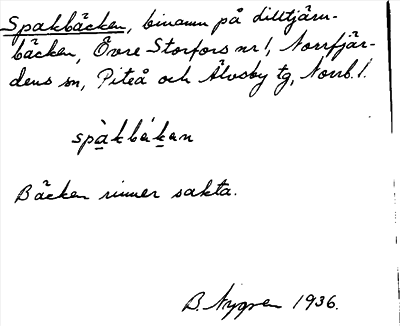 Spakbäcken, binamn på Lilltjärn-
bäcken, Övre Storfors nr 1, Norrfjär-
dens sn, Piteå och Älvsby tg, Norrb. l.
spàkbákan
Bäcken rinner sakta.
B. Nygren 1936.